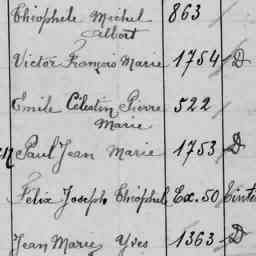 Théophile Michel 863 /
Albert
Victor François Marie 1754 / D
Emile Célestin Pierre 522 /
Marie
Paul Jean Marie 1753 / D
Felix Joseph Théophile Ex. 50
Jean Marie Yves 1363 / D